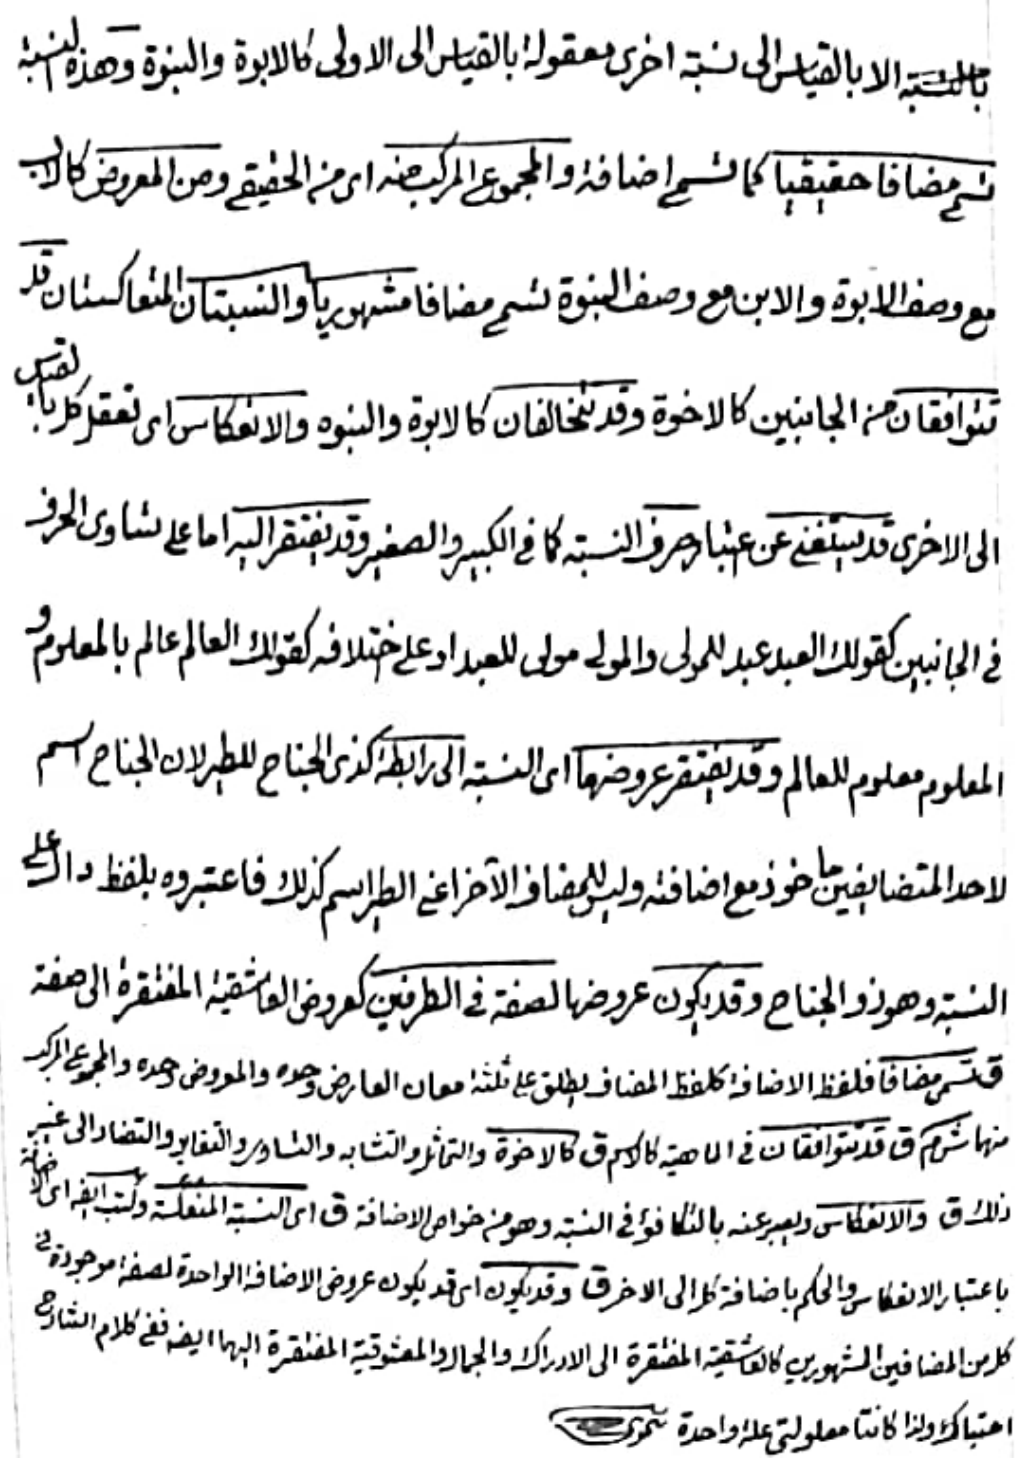 بالنسبة الا بالقياس الى نسبة اخرى معقولة بالقياس الى الاولى كالابوة والبنوة وهذه النسبة
تسمى مضافا حقيقيا كما تسمى اضافة والمجموع المركب منه اى من الحقيقي ومن المعروض كالاب
مع وصف الابوة والابن مع وصف البنوة تسمى مضافا مشهوريا والنسبتان المتعاكستان قد
تتوافقان من الجانبين كالاخوة وقد تتخالفان كالابوة والبنوه والانعكاس اى تعقل كل بالقياس
الى الاخرى قد يستغنى عن اعتبار حرف النسبة كما في الكبير والصغير وقد يفتقر اليه اما على تساوى الحرف
في الجانبين كقولك العبد عبد للمولى والمولى مولى للعبد او على اختلافه كقولك العالم عالم بالمعلوم و
المعلوم معلوم للعالم وقد يفتقر عروضها اى النسبة الى رابطة كذى الجناح للطير لان الجناح اسم
لاحد المتضايفين ماخوذ مع اضافته وليس للمضاف الآخر اعنى الطير اسم كذلك فاعتبروه بلفظ دال على
النسبة وهو ذو الجناح وقد يكون عروضها لصفة في الطرفين كعروض العاشقية المفتقرة الى صفة
ق تسمى مضافا فلفظ الاضافة كلفظ المضاف يطلق على ثلثة معان العارض وحده والمعروض وحده والمجموع المركب
منهما ق قد تتوافقان في الماهية كالاسم ق كالاخوة والتماثل والتشابه والتساوى والتغاير والتضاد الى غير
ذلك ق والانعكاس ويعبر عنه بالتكافؤ في النسبة وهو من خواص الاضافة ق اى النسبة المنعكسة اى الاضافة
باعتبار الانعكاس والحكم باضافة كل الى الاخر ق وقد يكون اى قد يكون عروض الاضافة الواحدة لصفة موجودة في
كل من المضافين المشهورين كالعاشقية المفتقرة الى الادراك والجمال والمعشوقية المفتقرة اليها ايضه ففى كلام الشارح
احتباك ولذا كانتا معلولتى علة واحدة